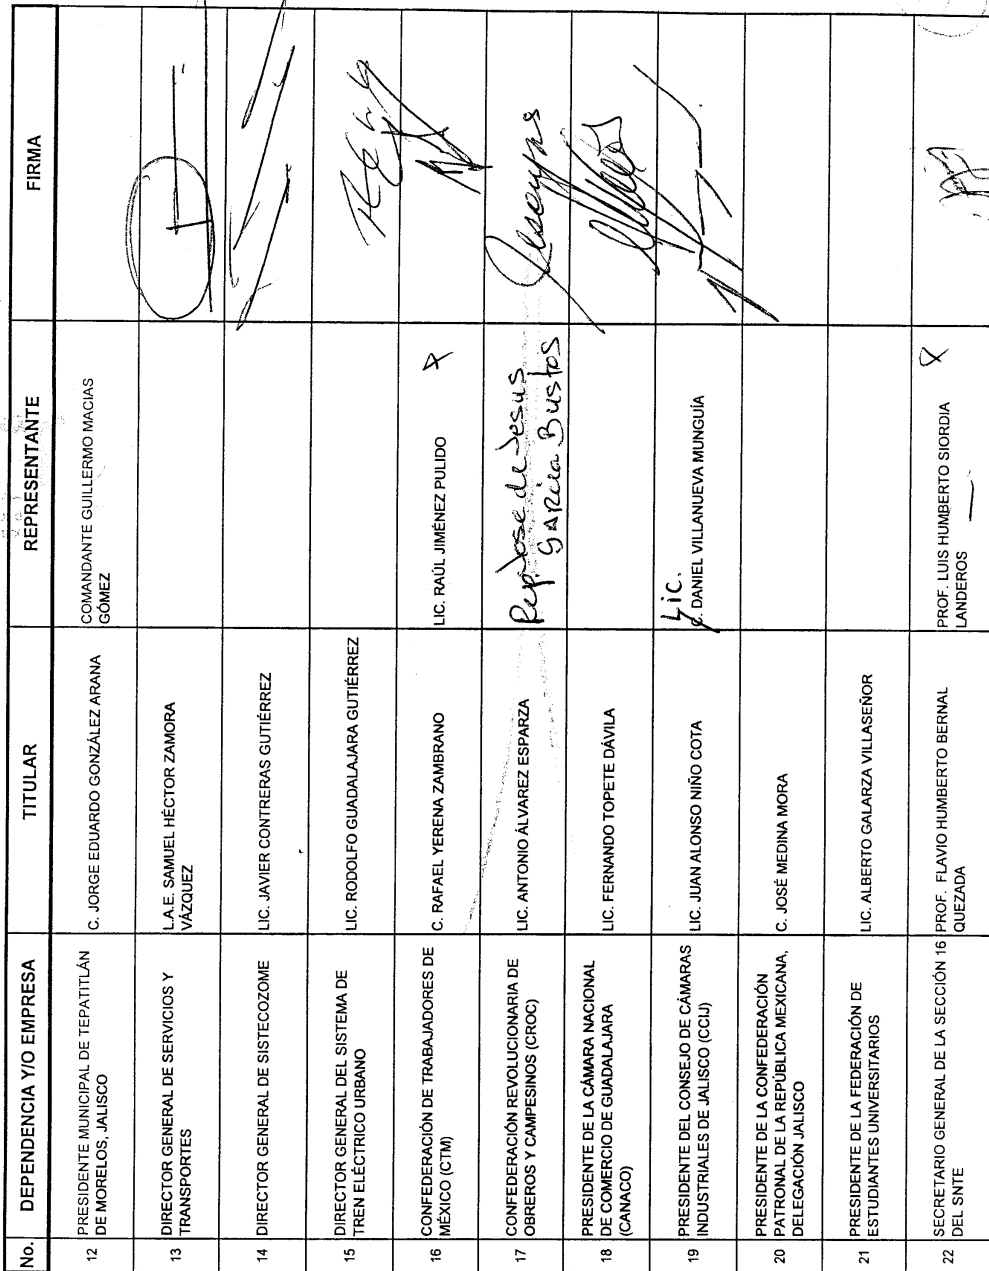 No. DEPENDENCIA Y/O EMPRESA TITULAR REPRESENTANTE FIRMA
12 PRESIDENTE MUNICIPAL DE TEPATITLÁN
DE MORELOS, JALISCO
C. JORGE EDUARDO GONZÁLEZ ARANA
COMANDANTE GUILLERMO MACIAS
GÓMEZ
13 DIRECTOR GENERAL DE SERVICIOS Y
TRANSPORTES
L.A.E. SAMUEL HÉCTOR ZAMORA
VÁZQUEZ
14 DIRECTOR GENERAL DE SISTECOZOME
LIC. JAVIER CONTRERAS GUTIÉRREZ
15 DIRECTOR GENERAL DEL SISTEMA DE
TREN ELÉCTRICO URBANO
LIC. RODOLFO GUADALAJARA GUTIÉRREZ
16 CONFEDERACIÓN DE TRABAJADORES DE
MÉXICO (CTM)
C. RAFAEL YERENA ZAMBRANO
LIC. RAÚL JIMÉNEZ PULIDO
17 CONFEDERACIÓN REVOLUCIONARIA DE
OBREROS Y CAMPESINOS (CROC)
LIC. ANTONIO ÁLVAREZ ESPARZA
Rep. Jose de Jesus
García Bustos
18 PRESIDENTE DE LA CÁMARA NACIONAL
DE COMERCIO DE GUADALAJARA
(CANACO)
LIC. FERNANDO TOPETE DÁVILA
19 PRESIDENTE DEL CONSEJO DE CÁMARAS
INDUSTRIALES DE JALISCO (CCIJ)
LIC. JUAN ALONSO NIÑO COTA
Lic.
C. DANIEL VILLANUEVA MUNGUÍA
20 PRESIDENTE DE LA CONFEDERACIÓN
PATRONAL DE LA REPÚBLICA MEXICANA,
DELEGACIÓN JALISCO
C. JOSÉ MEDINA MORA
21 PRESIDENTE DE LA FEDERACIÓN DE
ESTUDIANTES UNIVERSITARIOS
LIC. ALBERTO GALARZA VILLASEÑOR
22 SECRETARIO GENERAL DE LA SECCIÓN 16
DEL SNTE
PROF. FLAVIO HUMBERTO BERNAL
QUEZADA
PROF. LUIS HUMBERTO SIORDIA
LANDEROS